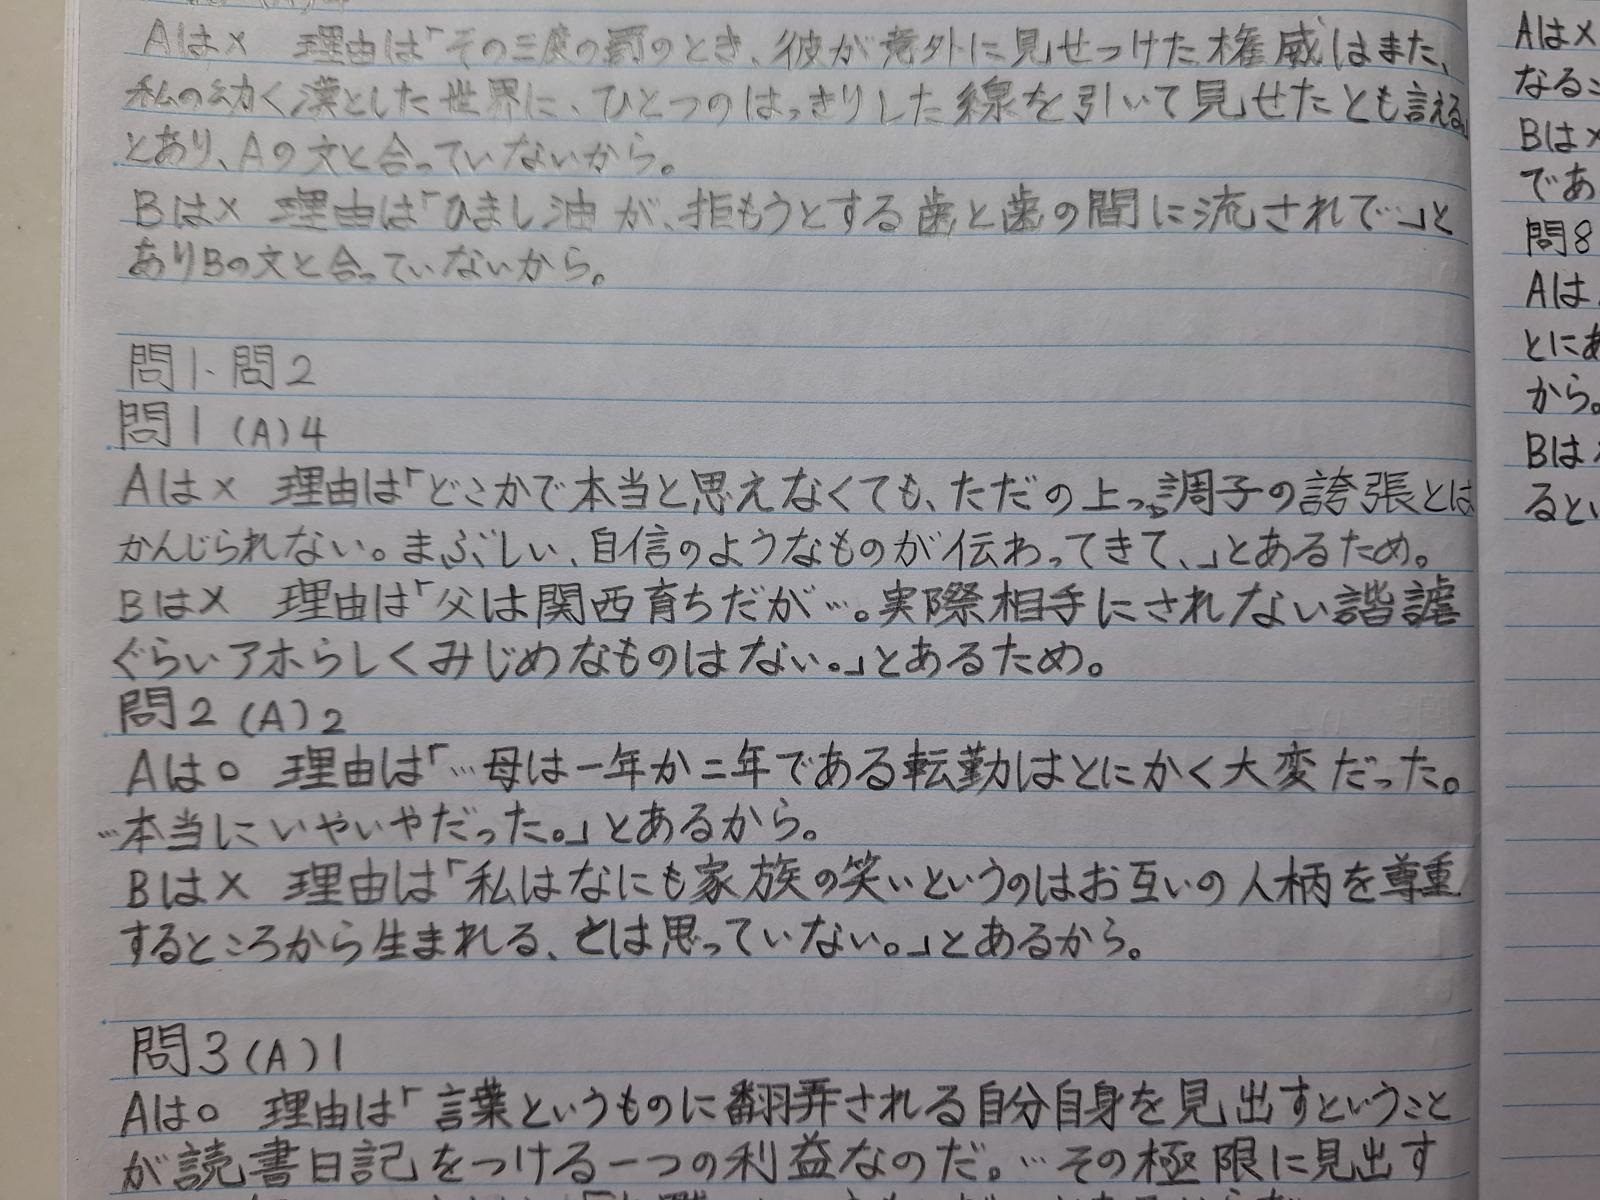 Aは× 理由は「その三度の罰のとき、彼が意外に見せつけた権威はまた、
私の幼く漠とした世界に、ひとつのはっきりした線を引いて見せたとも言える」
とあり、Aの文と合っていないから。
Bは× 理由は「ひまし油が、拒もうとする歯と歯の間に流されて…」と
ありBの文と合っていないから。
問1・問2
問1 (A)4
Aは× 理由は「どこかで本当と思えなくても、ただの上っ調子の誇張とは
かんじられない。まぶしい、自信のようなものが伝わってきて、」とあるため。
Bは× 理由は「父は関西育ちだが…。実際相手にされない諧謔
ぐらいアホらしくみじめなものはない。」とあるため。
問2 (A)2
Aは○ 理由は「…母は一年か二年である転勤はとにかく大変だった。
…本当にいやいやだった。」とあるから。
Bは× 理由は「私はなにも家族の笑いというのはお互いの人柄を尊重
するところから生まれる、とは思っていない。」とあるから。
問3 (A)1
Aは○ 理由は「言葉というものに翻弄される自分自身を見出すということ
が読書日記をつける一つの利益なのだ。…その極限に見出す
Aは×
なる
Bは×
であ
問8
Aは
とにあ
から。
Bは
るとい